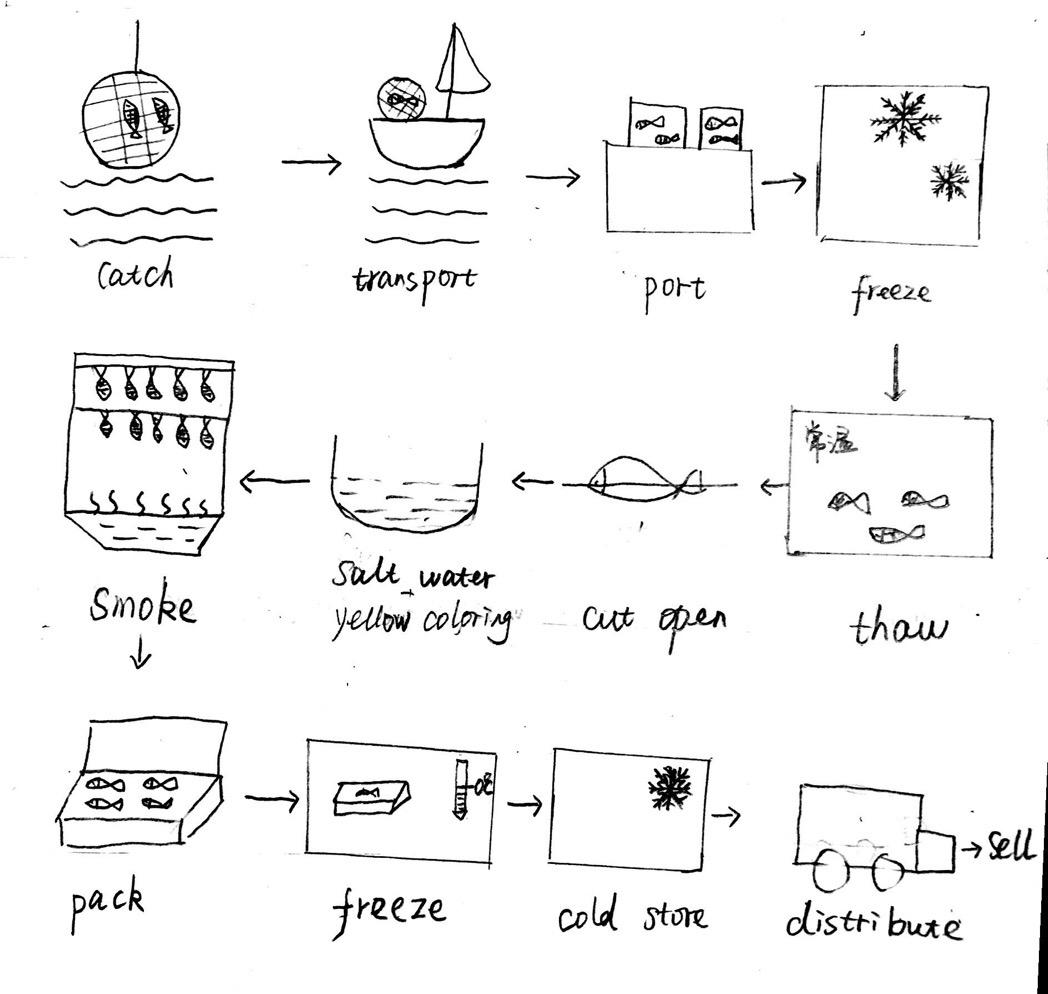 catch
transport
port
freeze
常温
thaw
cut open
salt water
+
yellow coloring
smoke
pack
0℃
freeze
cold store
distribute
sell